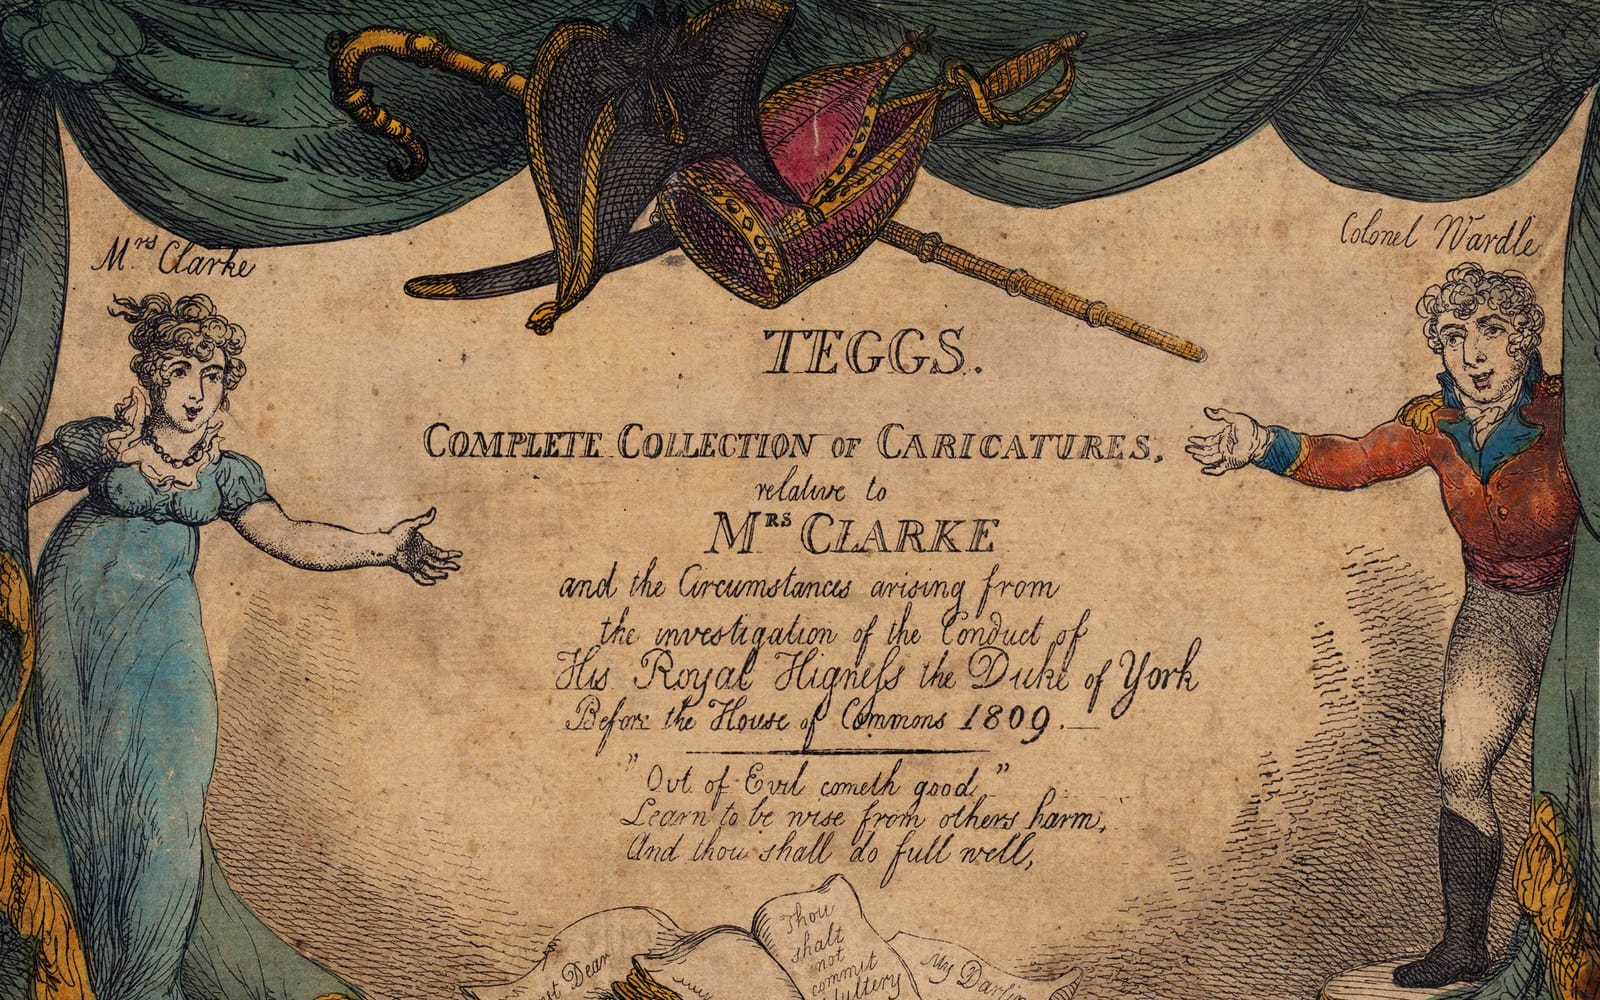 Mrs Clarke
Colonel Wardle
TEGGS.
COMPLETE COLLECTION OF CARICATURES,
relative to
MRS CLARKE
and the Circumstances arising from
the investigation of the Conduct of
His Royal Higneſs the Duke of York
Before the House of Commons 1809.
"Out of Evil cometh good"
Learn to be wise from others harm,
And thou shall do full well,
Thou
shalt
not
commit
Dear
My